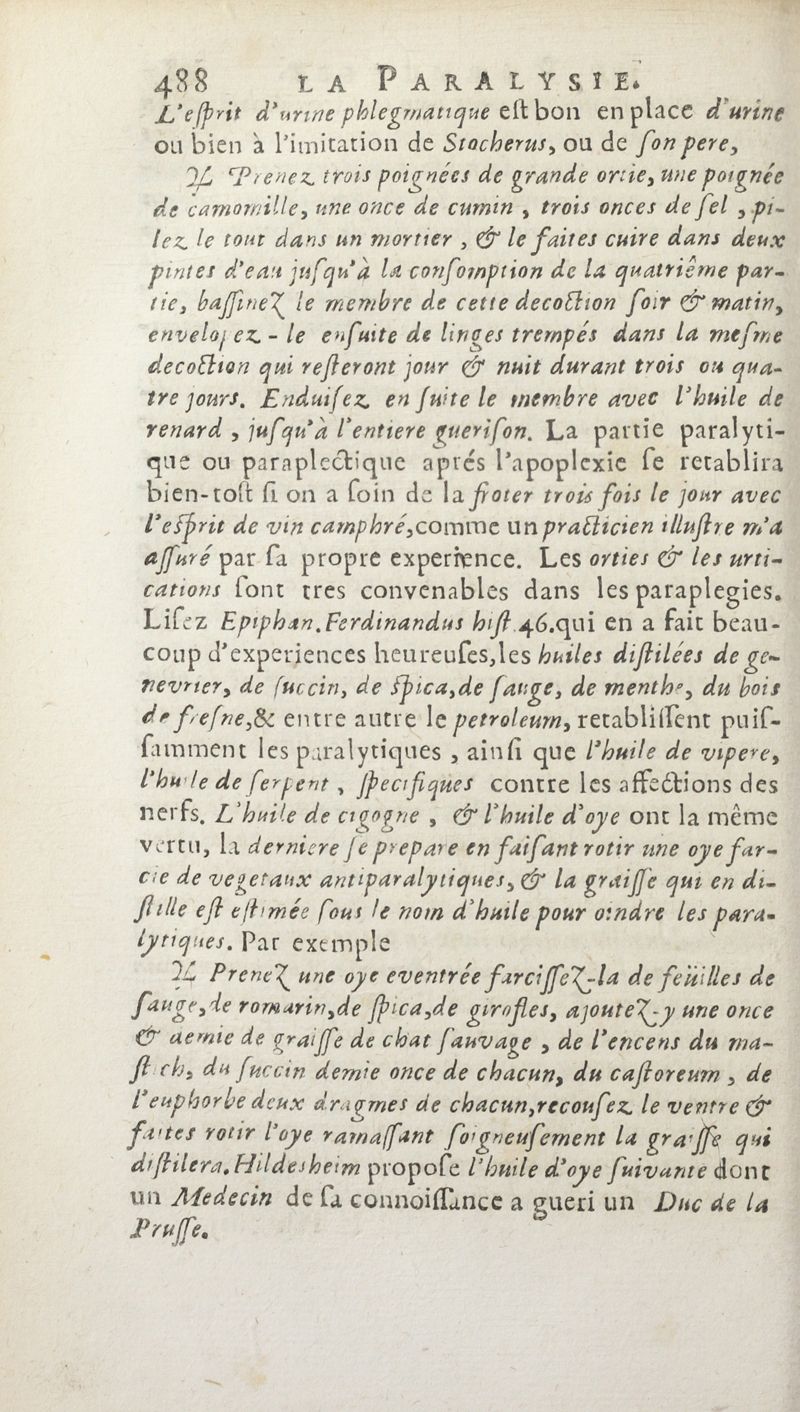 488 LA PARALYSIE.
L'eſprit d'urine phlegmatique eſt bon en place d'urine
ou bien à l'imitation de Stocherus, ou de ſon pere,
♃ Prenez trois poignées de grande ortie, une poignée
de camomille, une once de cumin , trois onces de ſel , pi-
lez le tout dans un mortier , & le faites cuire dans deux
pintes d'eau juſqu'à la conſomption de la quatriême par-
tie, baſſinez le membre de cette decoction ſoir & matin,
envelopez - le enſuite de linges trempés dans la meſme
decoction qui reſteront jour & nuit durant trois ou qua-
tre jours. Enduiſez en ſuite le membre avec l'huile de
renard , juſqu'à l'entiere gueriſon. La partie paralyti-
que ou paraplectique aprés l'apoplexie ſe retablira
bien-toſt ſi on a ſoin de la froter trois fois le jour avec
l'eſprit de vin camphré,comme un practicien illuſtre m'a
aſſuré par ſa propre experience. Les orties & les urti-
cations ſont tres convenables dans les paraplegies.
Liſez Epiphan.Ferdinandus hiſt.46.qui en a fait beau-
coup d'experiences heureuſes,les huiles diſtilées de ge-
nevrier, de ſuccin, de ſpica,de ſauge, de menthe, du bois
de freſne,& entre autre le petroleum, retabliſſent puiſ-
ſamment les paralytiques , ainſi que l'huile de vipere,
l'huile de ſerpent , ſpecifiques contre les affections des
nerfs. L'huile de cigogne , & l'huile d'oye ont la même
vertu, la derniere ſe prepare en faiſant rotir une oye far-
cie de vegetaux antiparalytiques, & la graiſſe qui en di-
ſtille eſt eſtimée ſous le nom d'huile pour oindre les para-
lytiques. Par exemple
♃ Prenez une oye eventrée farciſſez-la de feüilles de
ſauge,de romarin,de ſpica,de girofles, ajoutez-y une once
& demie de graiſſe de chat ſauvage , de l'encens du ma-
ſtich, du ſuccin demie once de chacun, du caſtoreum , de
l'euphorbe deux dragmes de chacun,recouſez le ventre &
faites rotir l'oye ramaſſant ſoigneuſement la graiſſe qui
diſtilera. Hildesheim propoſe l'huile d'oye ſuivante dont
un Medecin de ſa connoiſſance a gueri un Duc de la
Pruſſe.